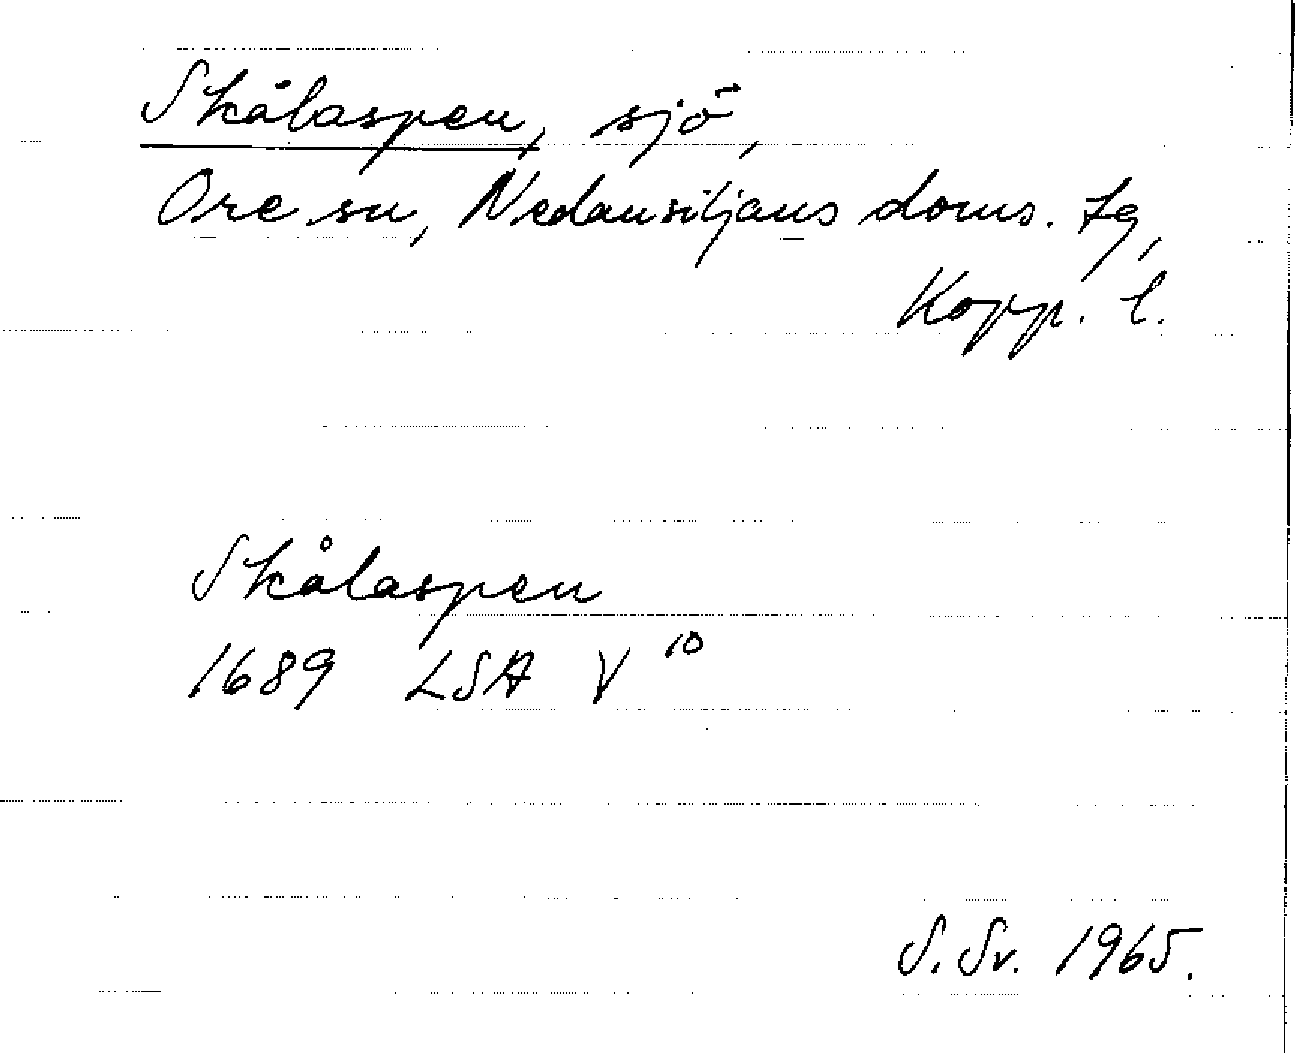 Skålaspen, sjö,
Ore sn, Nedansiljans doms. tg,
Kopp. l.
Skålaspen
1689 LSA V 10
S. Sv. 1965.